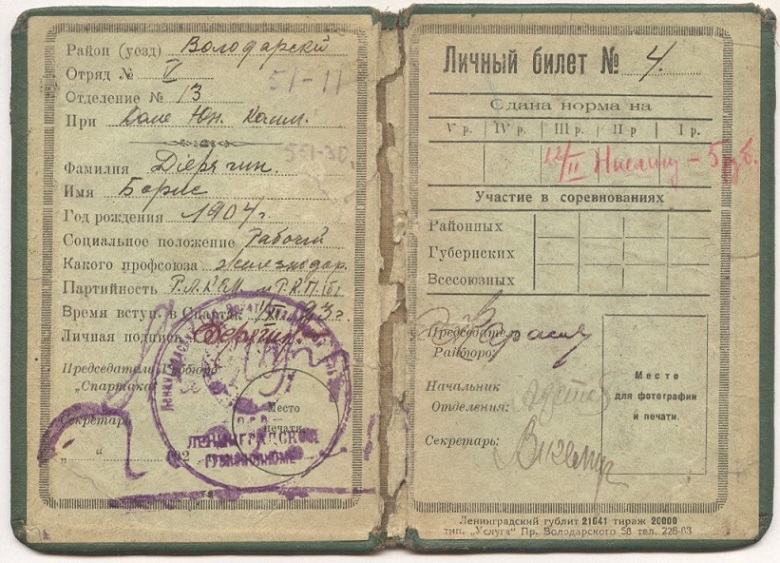 Район (уезд) Володарский
Отряд № V
51-11
Отделение № 13
При Коле Юн. Комм.
551-30
Фамилия Дерягин.
Имя Борис
Год рождения 1907 г.
Социальное положение Рабочий
Какого профсоюза железнодор.
Партийность Р.Л.К.С.М. и Р.К.П.(б)
Время вступ. в Спартак 1923 г.
Личная подпись Дерягин
Председатель Губбюро
„Спартака"
Секретарь
„ " 192
Место
печати
ЛЕНИНГРАДСКОМ
ГУБИСПОЛКОМЕ
Личный билет № 4.
Сдана норма на
V р. IV р. III р. II р I р.
Участие в соревнованиях
Районных
Губернских
Всесоюзных
Председатель
Райбюро:
Начальник
Отделения:
Секретарь:
Место
для фотографии
и печати.
Ленинградский гублит 21641 тираж 20000
тип. „Услуга" Пр. Володарского 58 тел. 228-03